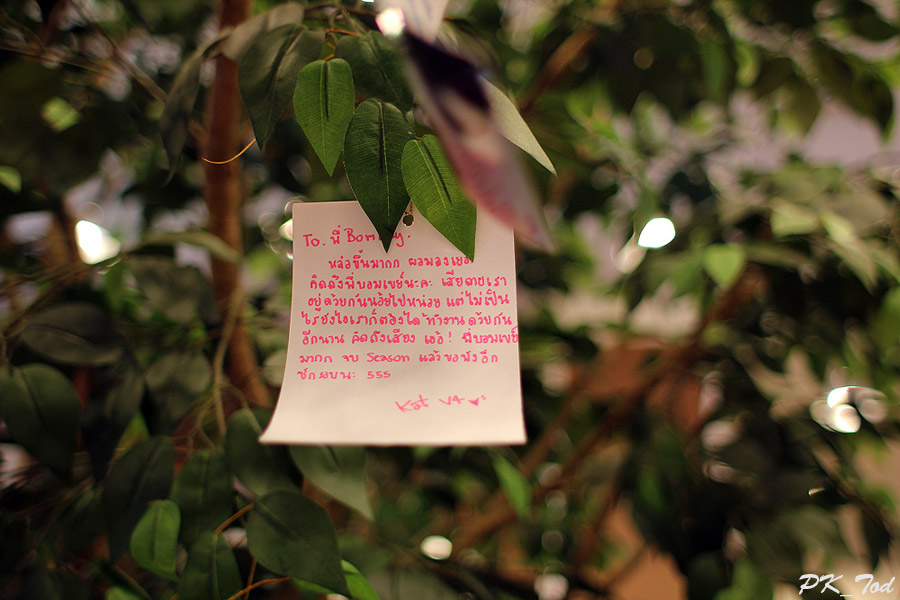 To. พี่ Bombay.
หล่อขึ้นมากก ผอมลงเยอะ
คิดถึงพี่บอมเบย์นะคะ เสียดายเรา
อยู่ด้วยกันน้อยไปหน่อย แต่ไม่เป็น
ไรยังไงเราก็ต้องได้ทำงานด้วยกัน
อีกนาน คิดถึงเสียง เธอ! พี่บอมเบย์
มากก จบ Season แล้วขอฟังอีก
ซักรอบนะ 555
Kat V4
PK_Tod